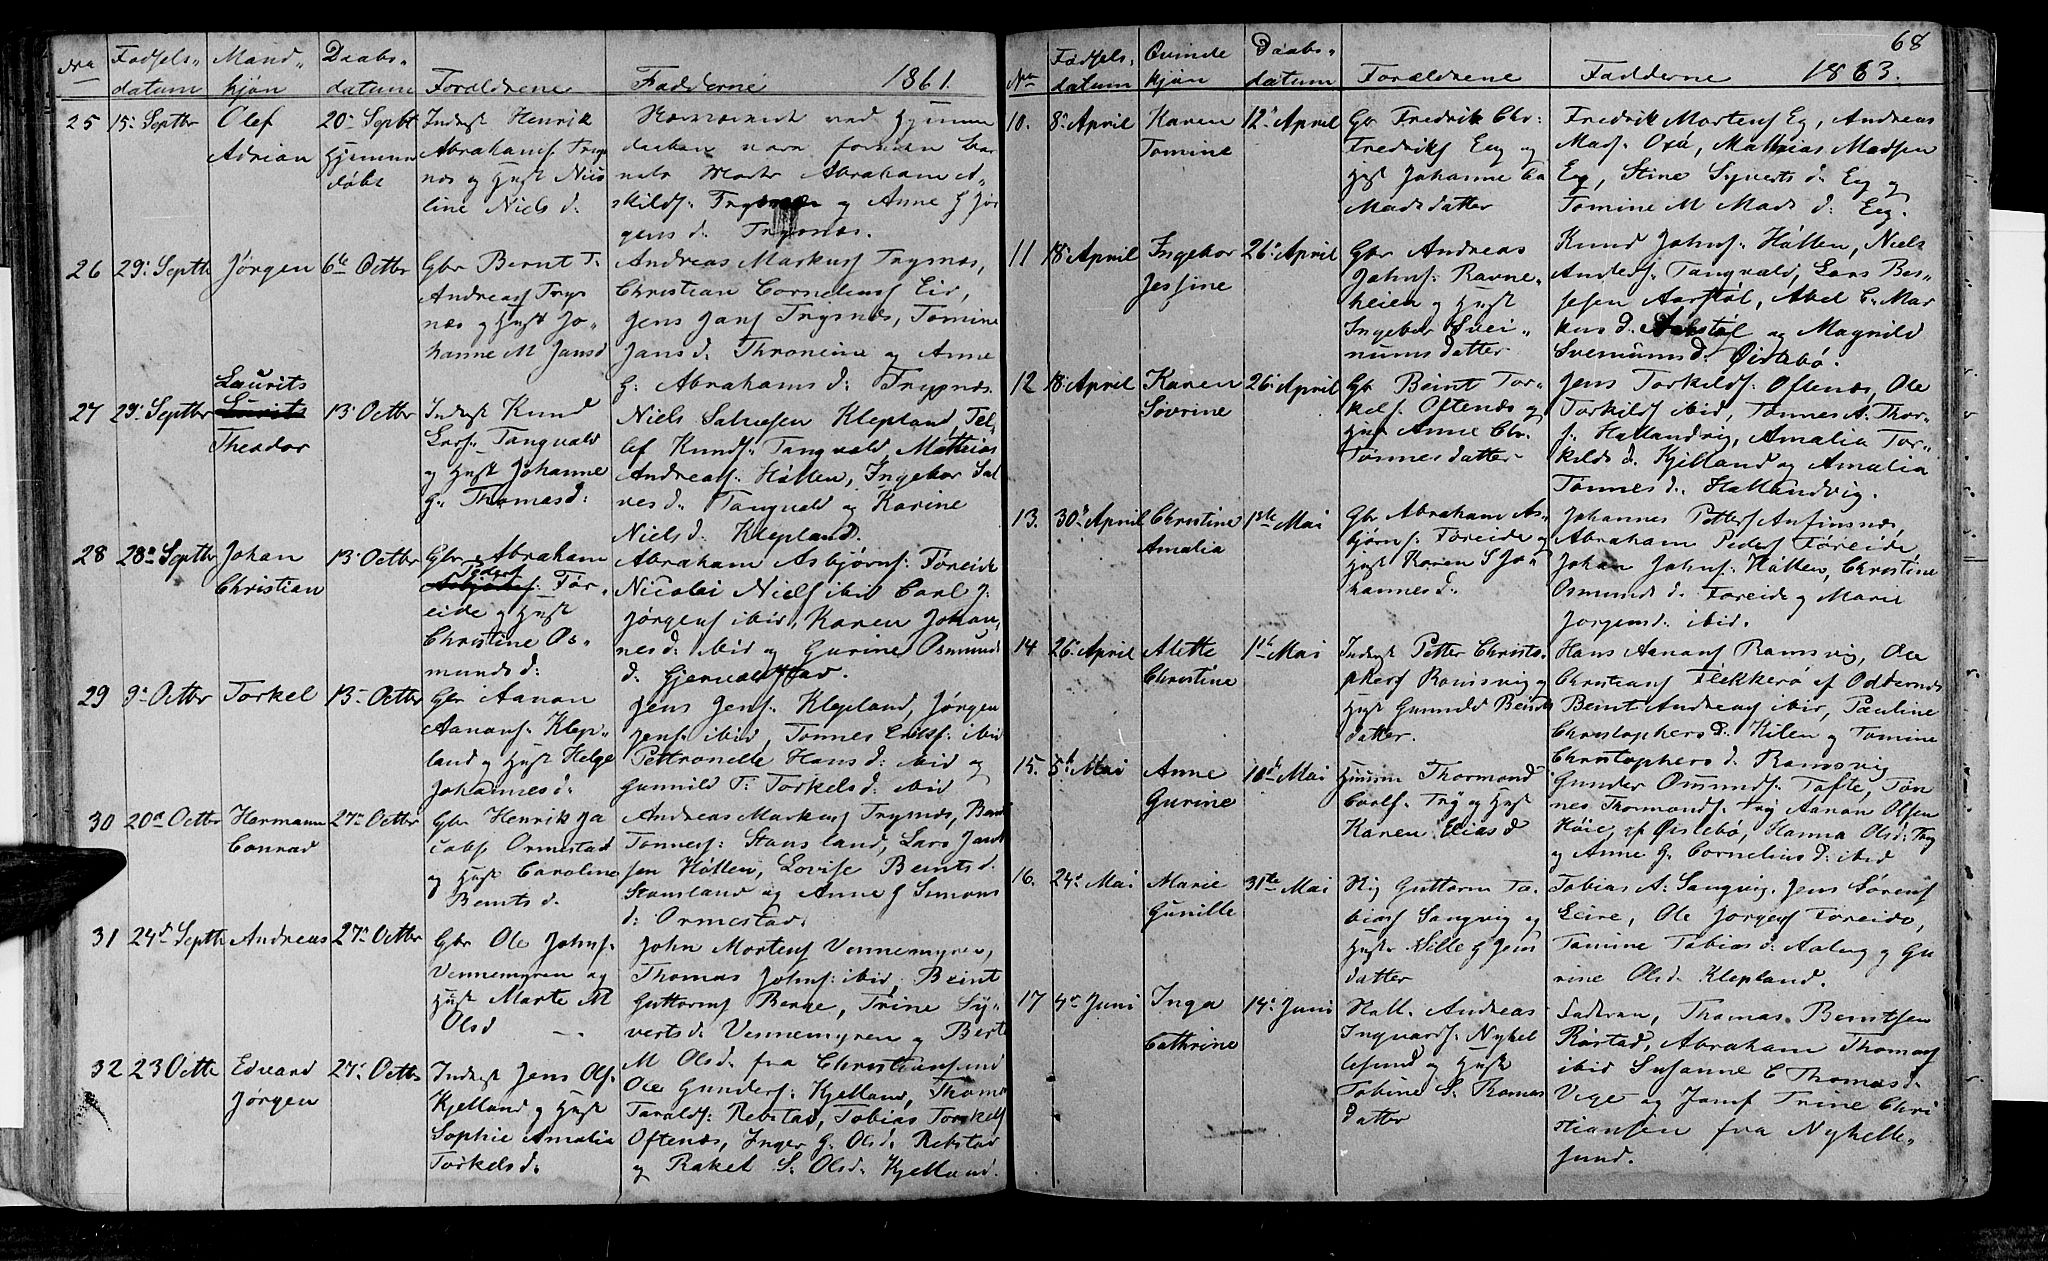 Nra Fødsels- datum Mand- kjøn Daabs- datum Forældrene Fadderne 1861.
25 15de Septbr Olef Adrian 20de Septbr Hjemmedøbt
Indst Henrik
Abrahams. Trys
næs og Hust Niel
line Niels d.
daaben navn
nets Moster Abraham A
skilds. Trysnæs og Anne G Jør
gens d. Trysnæs.
26 29de Septbr Jørgen 6te Octbr
Gbr Bernt T.
Andreass Trys
næs og Hust Jo-
hanne M Jansd
Andreas Markuss Trysnæs,
Christian Corneliuss Eid,
Jens Janss Trysnæs, Tomine
Jansd. Throneine og Anne
G. Abrahamsd. Trysnæs.
27 29de Septbr Laurits Theodor 13de Octbr
Indst Knud
Larss. Tangvald
og Hust Johanne
G. Thomasd:
Niels Salvesen Klepland, Tel-
lef Knuds. Tangvald, Mathias
Andreass. Høllen, Ingebor Sal
vesd. Tangvald og Karine
Nielsd. Klepland.
28 28de Septbr Johan Christian 13de Octbr
Gbr Abraham
Peders. Før-
eide og Hust
Christine Os-
mundsd:
Abraham Asbjørns. Føreide
Nicolai Niels ibid Carl J.
Jørgens ibid, Karen Johan-
nesd. ibid og Gurine Osmunds
d.
29 9de Octbr Torkel 13de Octbr
Gbr Aanon
Aanons. Klep-
land og Hust Helge
Johannesd.
Jens Jens. Klepland, Jørgen
Jens. ibid, Tønnes Eriks. ibid
Pettronelle Hansd: ibid og
Gunnild T. Torkelsd. ibid
30 20de Octbr Hermann Conrad 27de Octbr
Gbr Henrik Ja
cobs Ormestad
og Hust Caroline
Berntsd.
Andreas Markuss Trysnæs, Bernt
Tønness. Stausland, Lars Jant
sen Høllen, Lovise Berntsd.
Stausland og Anne G Simons
d: Ormestad.
31 24de Septbr Andreas 27de Octbr
Gbr Ole Johns.
Vennemyren og
Hust Marte M
Olsd
John Mortens Vennemyren,
Thomas Johns. ibid, Beint
Guttorms Berge, Trine Sy-
vertsd. Vennemyren og Berte
M Olsd. fra Christiansund
32 23 Octbr Edvard Jørgen 27de Octbr
Indst Jens Ols.
Kjelland og Hust
Sophie Amalia
Torkelsd.
Ole Gunders. Kjelland, Thomas
Taralds. Rebstad, Tobias Torkels
Oftenæs, Inger G. Olsd. Rebstad
og Rakel S. Olsd. Kjelland.
68
Nra Fødsels- datum Qvinde kjøn Daabs- datum Forældrene Fadderne 1863.
10. 8de April Karen Tomine 12de April
Gbr Fredrik Chr.
Fredriks Eeg og
Hust Johanne
Madsdatter
Fredrik Mortens Eg, Andreas
Mads. Oxø, Mathias Madsen
Eeg, Stine Syvertsd. Eeg og
Tomine M Madsd: Eeg.
11 18de April Ingebor Jessine 26de April
Gbr Andreas
Johns: Ravne-
heien og Hust
Ingebor Svei-
numsdatter
Knud Johns. Høllen, Niels
Anders. Tangvald, Lars Bes-
sesen Aarstøl, Abel C. Mar
kusd. Aarstøl og Magnild
Svenumsd. Øislebø.
12 18de April Karen Sövrine 26de April
Gbr Beint Tor-
kels. Oftenæs og
Hust Anne Chr.
Tønnesdatter
Jens Torkilds. Oftenæs, Ole
Torkilds ibid, Tønnes A. Thor-
s. Hallandvig, Amalia Tor-
kildsd. Kjelland og Amalia
Tønnesd. Hallandvig.
13. 30de April Christine Amalia 1ste Mai
Gbr Abraham As-
bjørns. Føreide og
Hust Karen S Jo-
hannesd.
Johannes Petters Anfinsnæs,
Abraham Peders Føreide,
Johan Johns. Høllen, Christine
Osmundsd. Føreide og Marie
Jørgensd. ibid.
14 26de April Alette Christine 1ste Mai
Indst Petter Christo-
phers Ramsvig og
Hust Gunnild Beints
datter.
Hans Aanons Ramsvig, Ole
Christians Flekkerø af Oddernæs
Beint Andreass ibid, Pauline
Christophersd. Kilen og Tomine
Christophersd. Ramsvig
15. 5te Mai Anne Gurine 10de Mai
Huusm Thormond
Carls. Try og Hust
Karen Eliasd
Gunder Osmunds. Tofte, Tøn
nes Thormonds. Try Aanon Olsen
Høie, af Øislebø, Hanna Olsd. Try
og Anne G. Corneliusd. ibid
16. 24de Mai Marie Gunille 31te Mai
Guttorm To-
bias Sangvig og
Hust Sille G Jens
datter
Tobias A. Sangvig, Jens Sørens
Leire, Ole Jørgens Føreide,
Tomine Tobiasd. Aaberg og Gu
rine Olsd. Klepland.
17 4de Juni Inga Cathrine 14de Juni
Andreas
Ingvards. Nyhel
lesund og Hust
Tobine S. Tomas
datter
Faderen, Thomas Berntsen
Røstad, Abraham Thomas
ibid Susanne C Thomasd.
Vige og Jomf Trine Chri
stiansen fra Nyhelle-
sund.